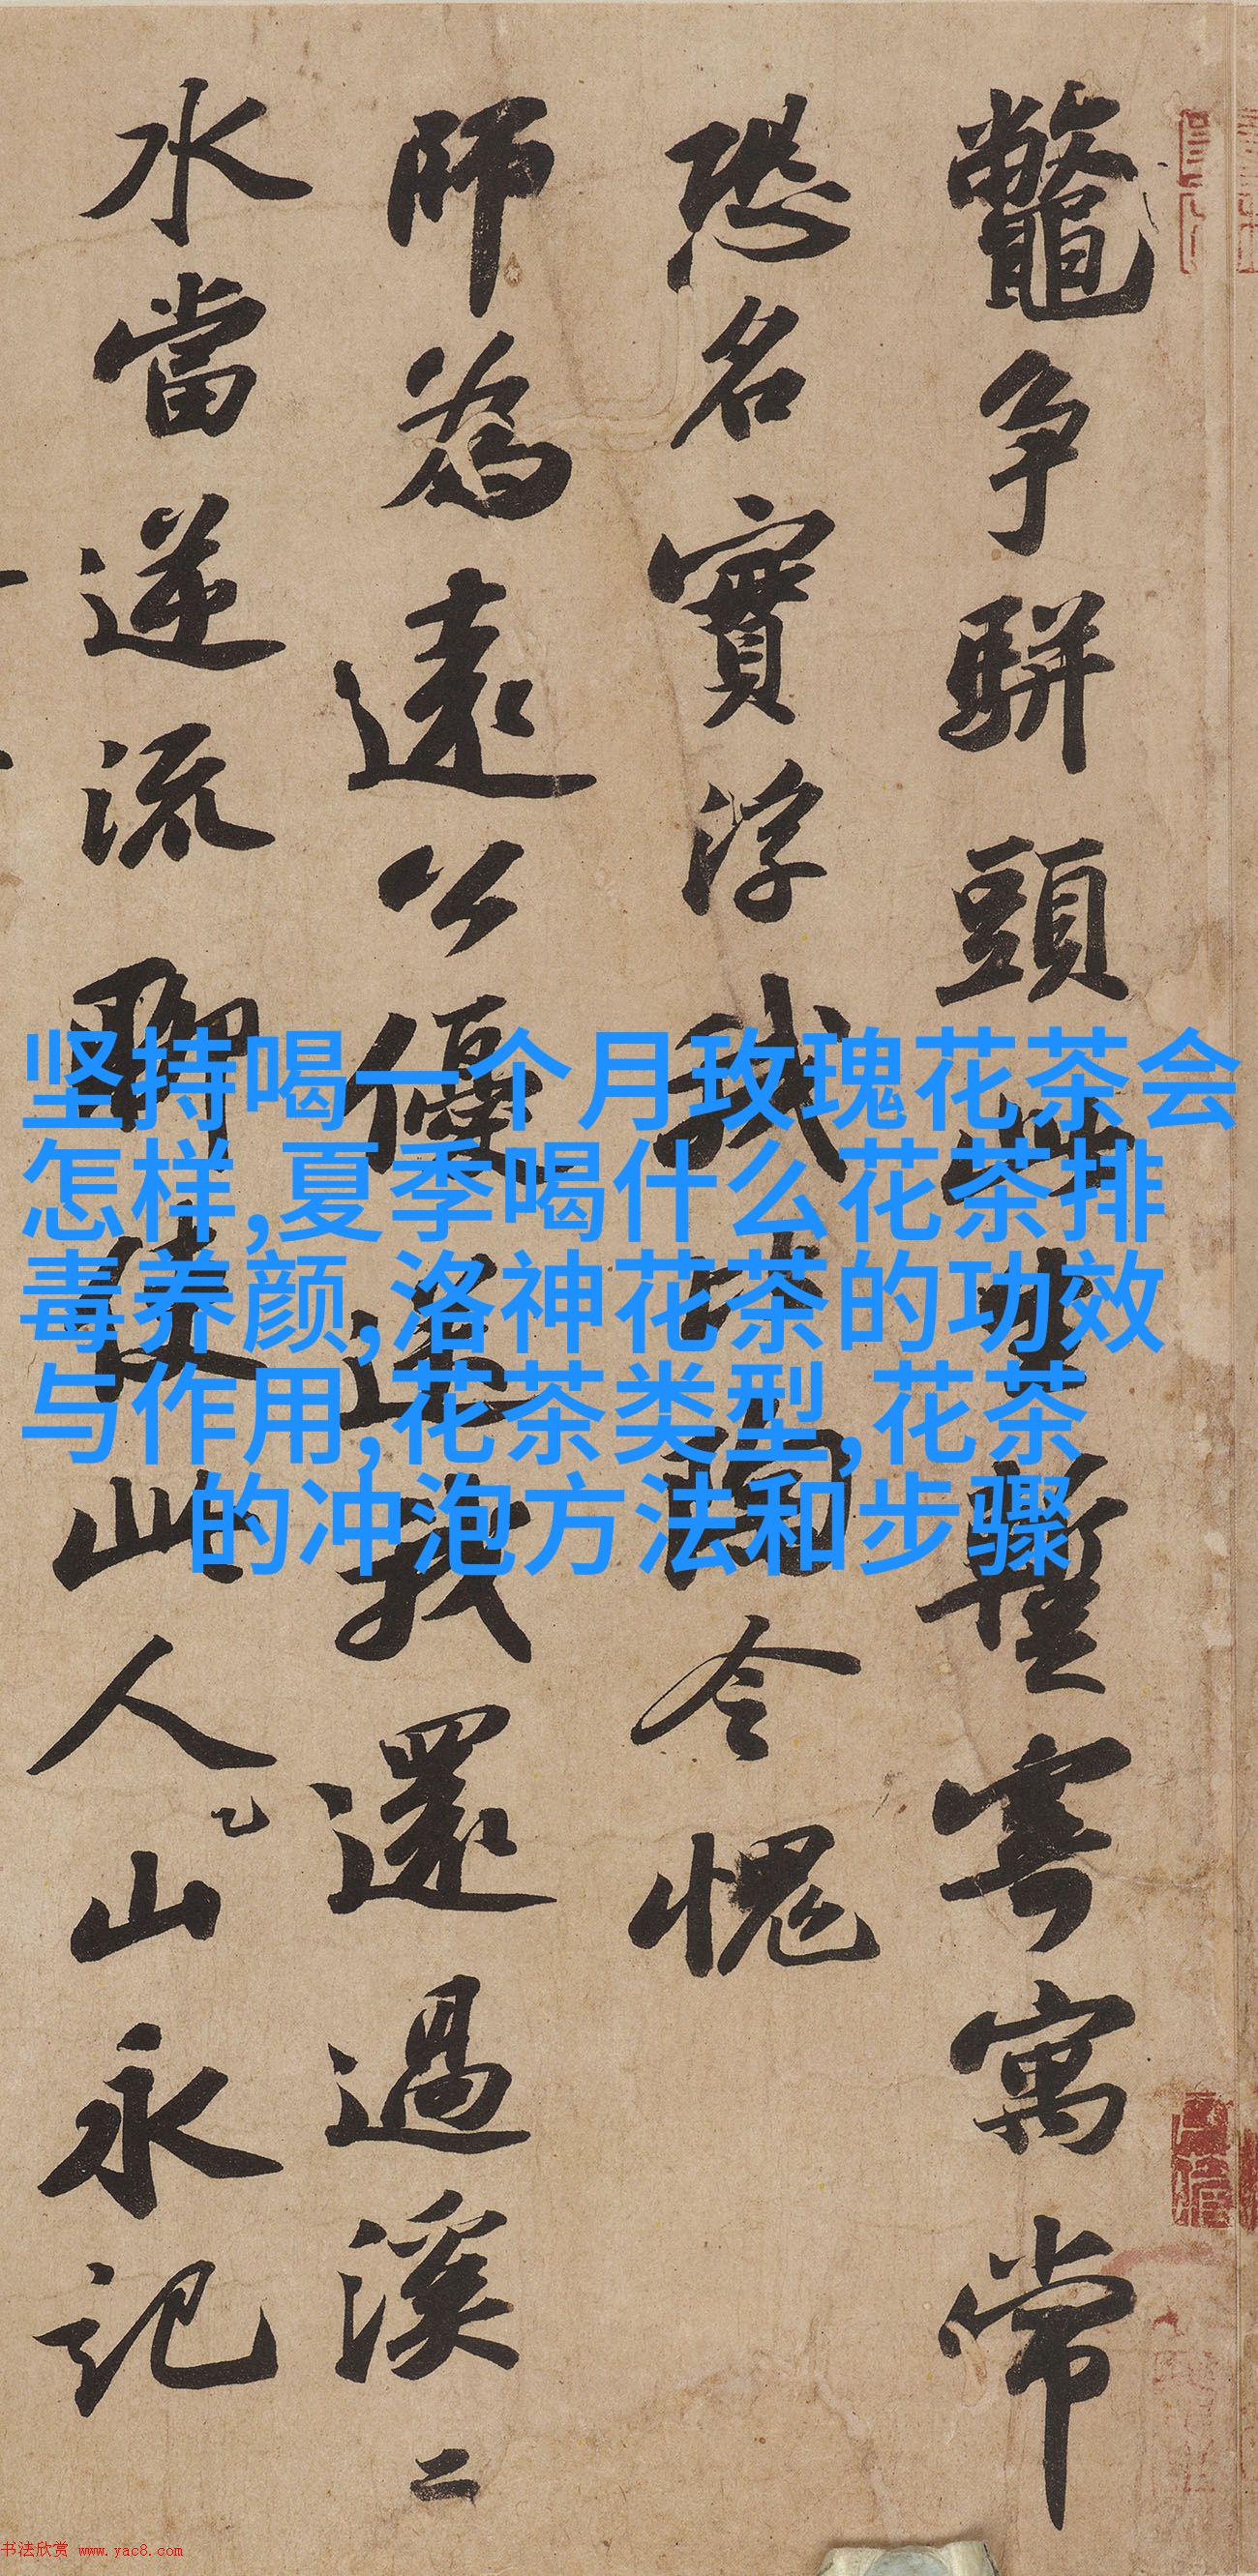 鼈争駢頭此生暫寄寓常
恐名實浮我比陶令愧
師為遠公優送我還過溪二
水當逆流聊使此人山永記
坚持喝一个月玫瑰花茶会
怎样,夏季喝什么花茶排
毒养颜,洛神花茶的功效
与作用,花茶类型,花茶
的冲泡方法和步骤
书法欣赏 www.yac8.com